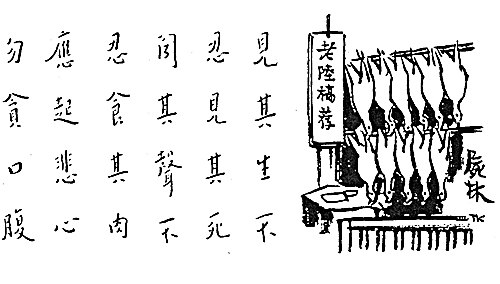 屍林
TK
老陸稿荐
見其生不
忍見其死
聞其聲不
忍食其肉
應起悲心
勿貪口腹